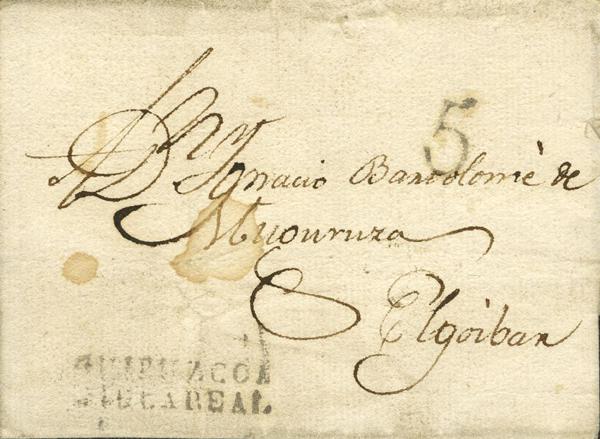 5
A Dn Ignacio Bartolomè de
Muguruza
Elgòibar
GUIPUZCOA
VILLAREAL